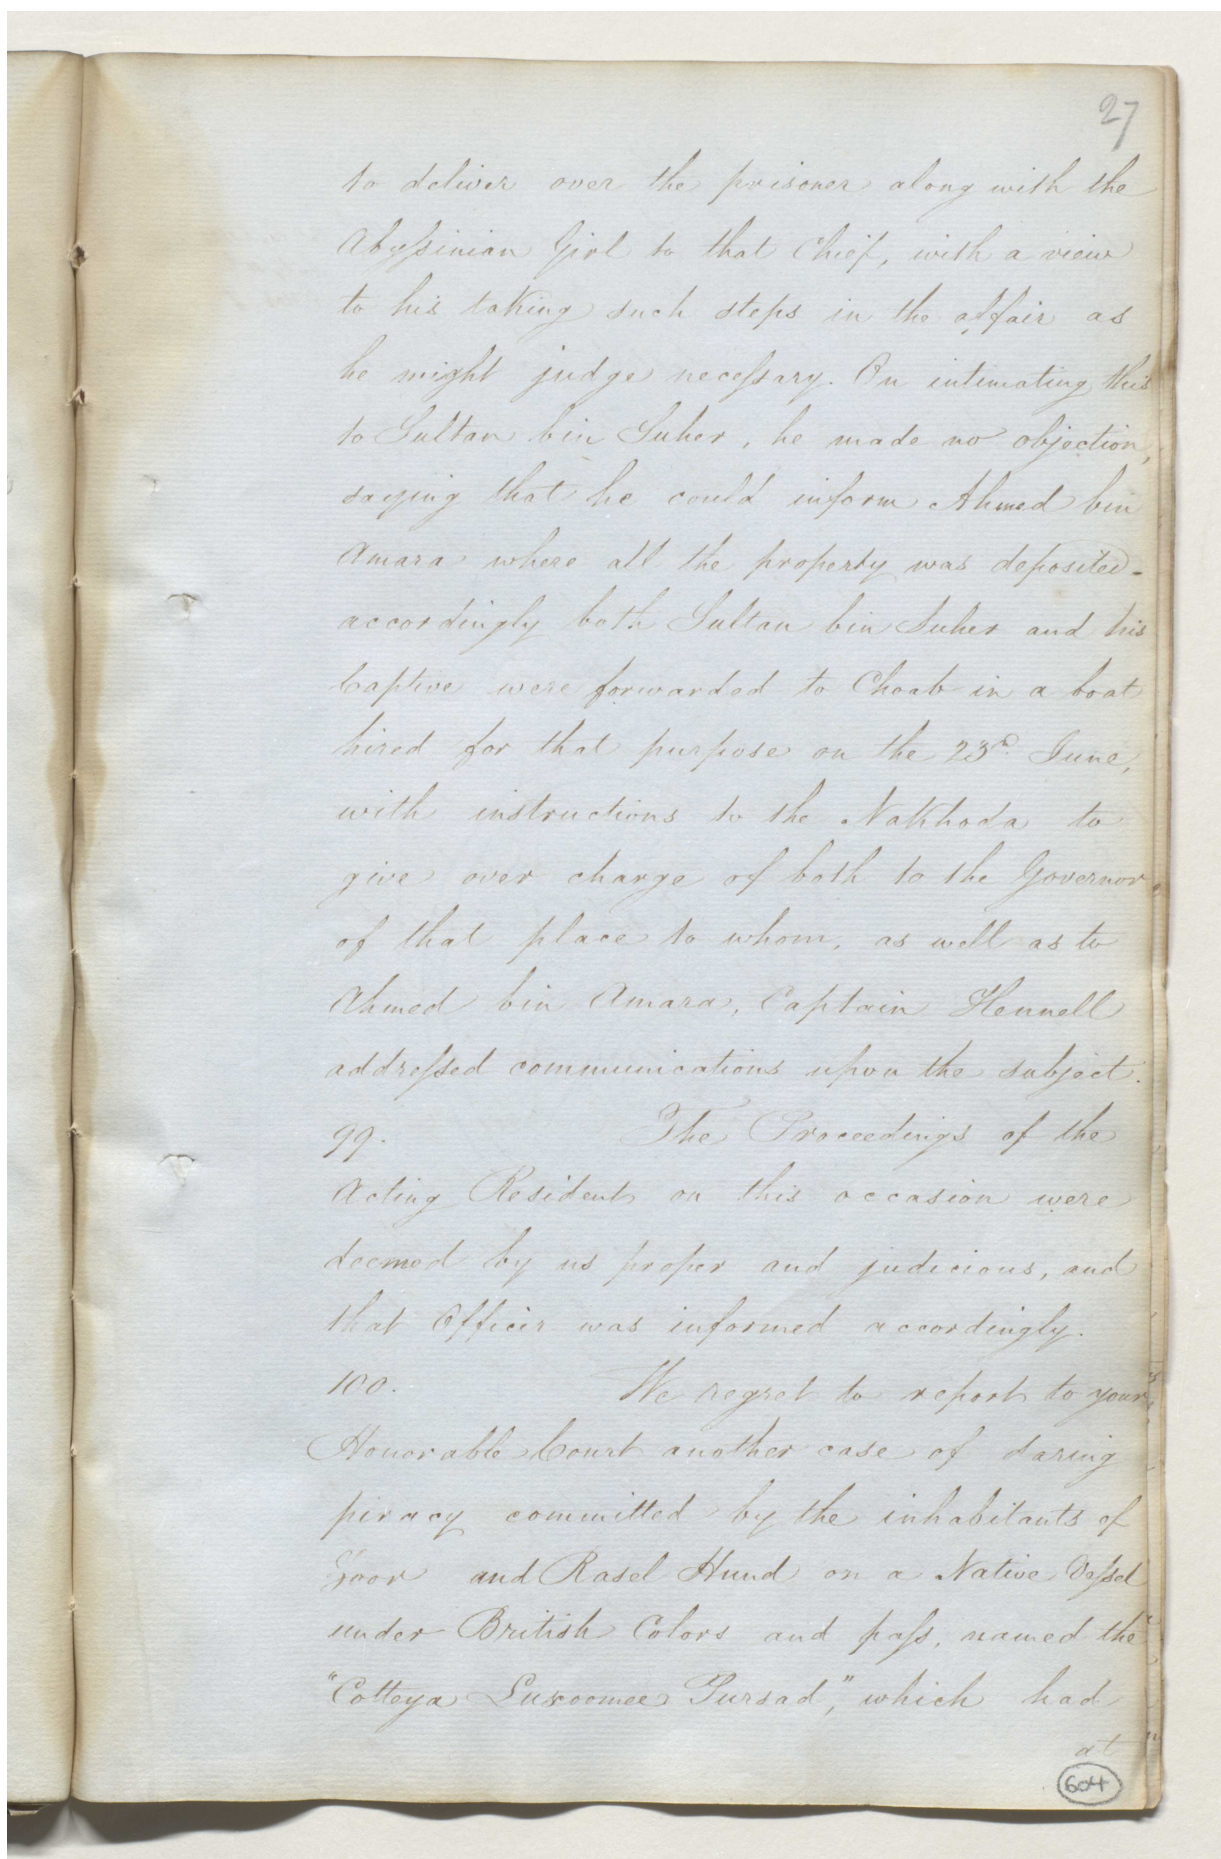 27
to deliver over the prisoner along with the
Abyssinian Girl to that Chief, with a view
to his taking such steps in the affair as
he might judge necessary. On intimating this
to Sultan bin Suher, he made no objection,
saying that he could inform Ahmed bin
Amara where all the property was deposited -
accordingly both Sultan bin Suher and his
Captive were forwarded to Choab in a boat
hired for that purpose on the 23rd June,
with instructions to the Nakhoda to
give over charge of both to the Governor
of that place to whom, as well as to
Ahmed bin Amara, Captain Hennell
addressed communications upon the subject.
99. The Proceedings of the
Acting Resident on this occasion were
deemed by us proper and judicious, and
that Officer was informed accordingly.
100. We regret to report to your
Honorable Court another case of daring
piracy committed by the inhabitants of
Goor and Rasel Hund on a Native Vessel
under British Colors and pass, named the
"Cotteya Luxoomee Pursad," which had
at
604